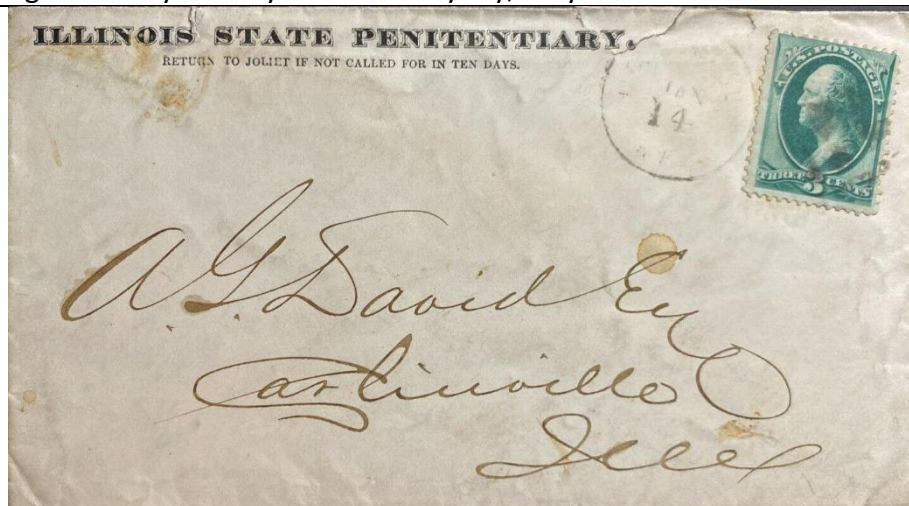 ILLINOIS STATE PENITENTIARY.
RETURN TO JOLIET IF NOT CALLED FOR IN TEN DAYS.
JAN
14
U.S. POSTAGE
THREE 3 CENTS
A. G. David Esq
Carlinville
Ills